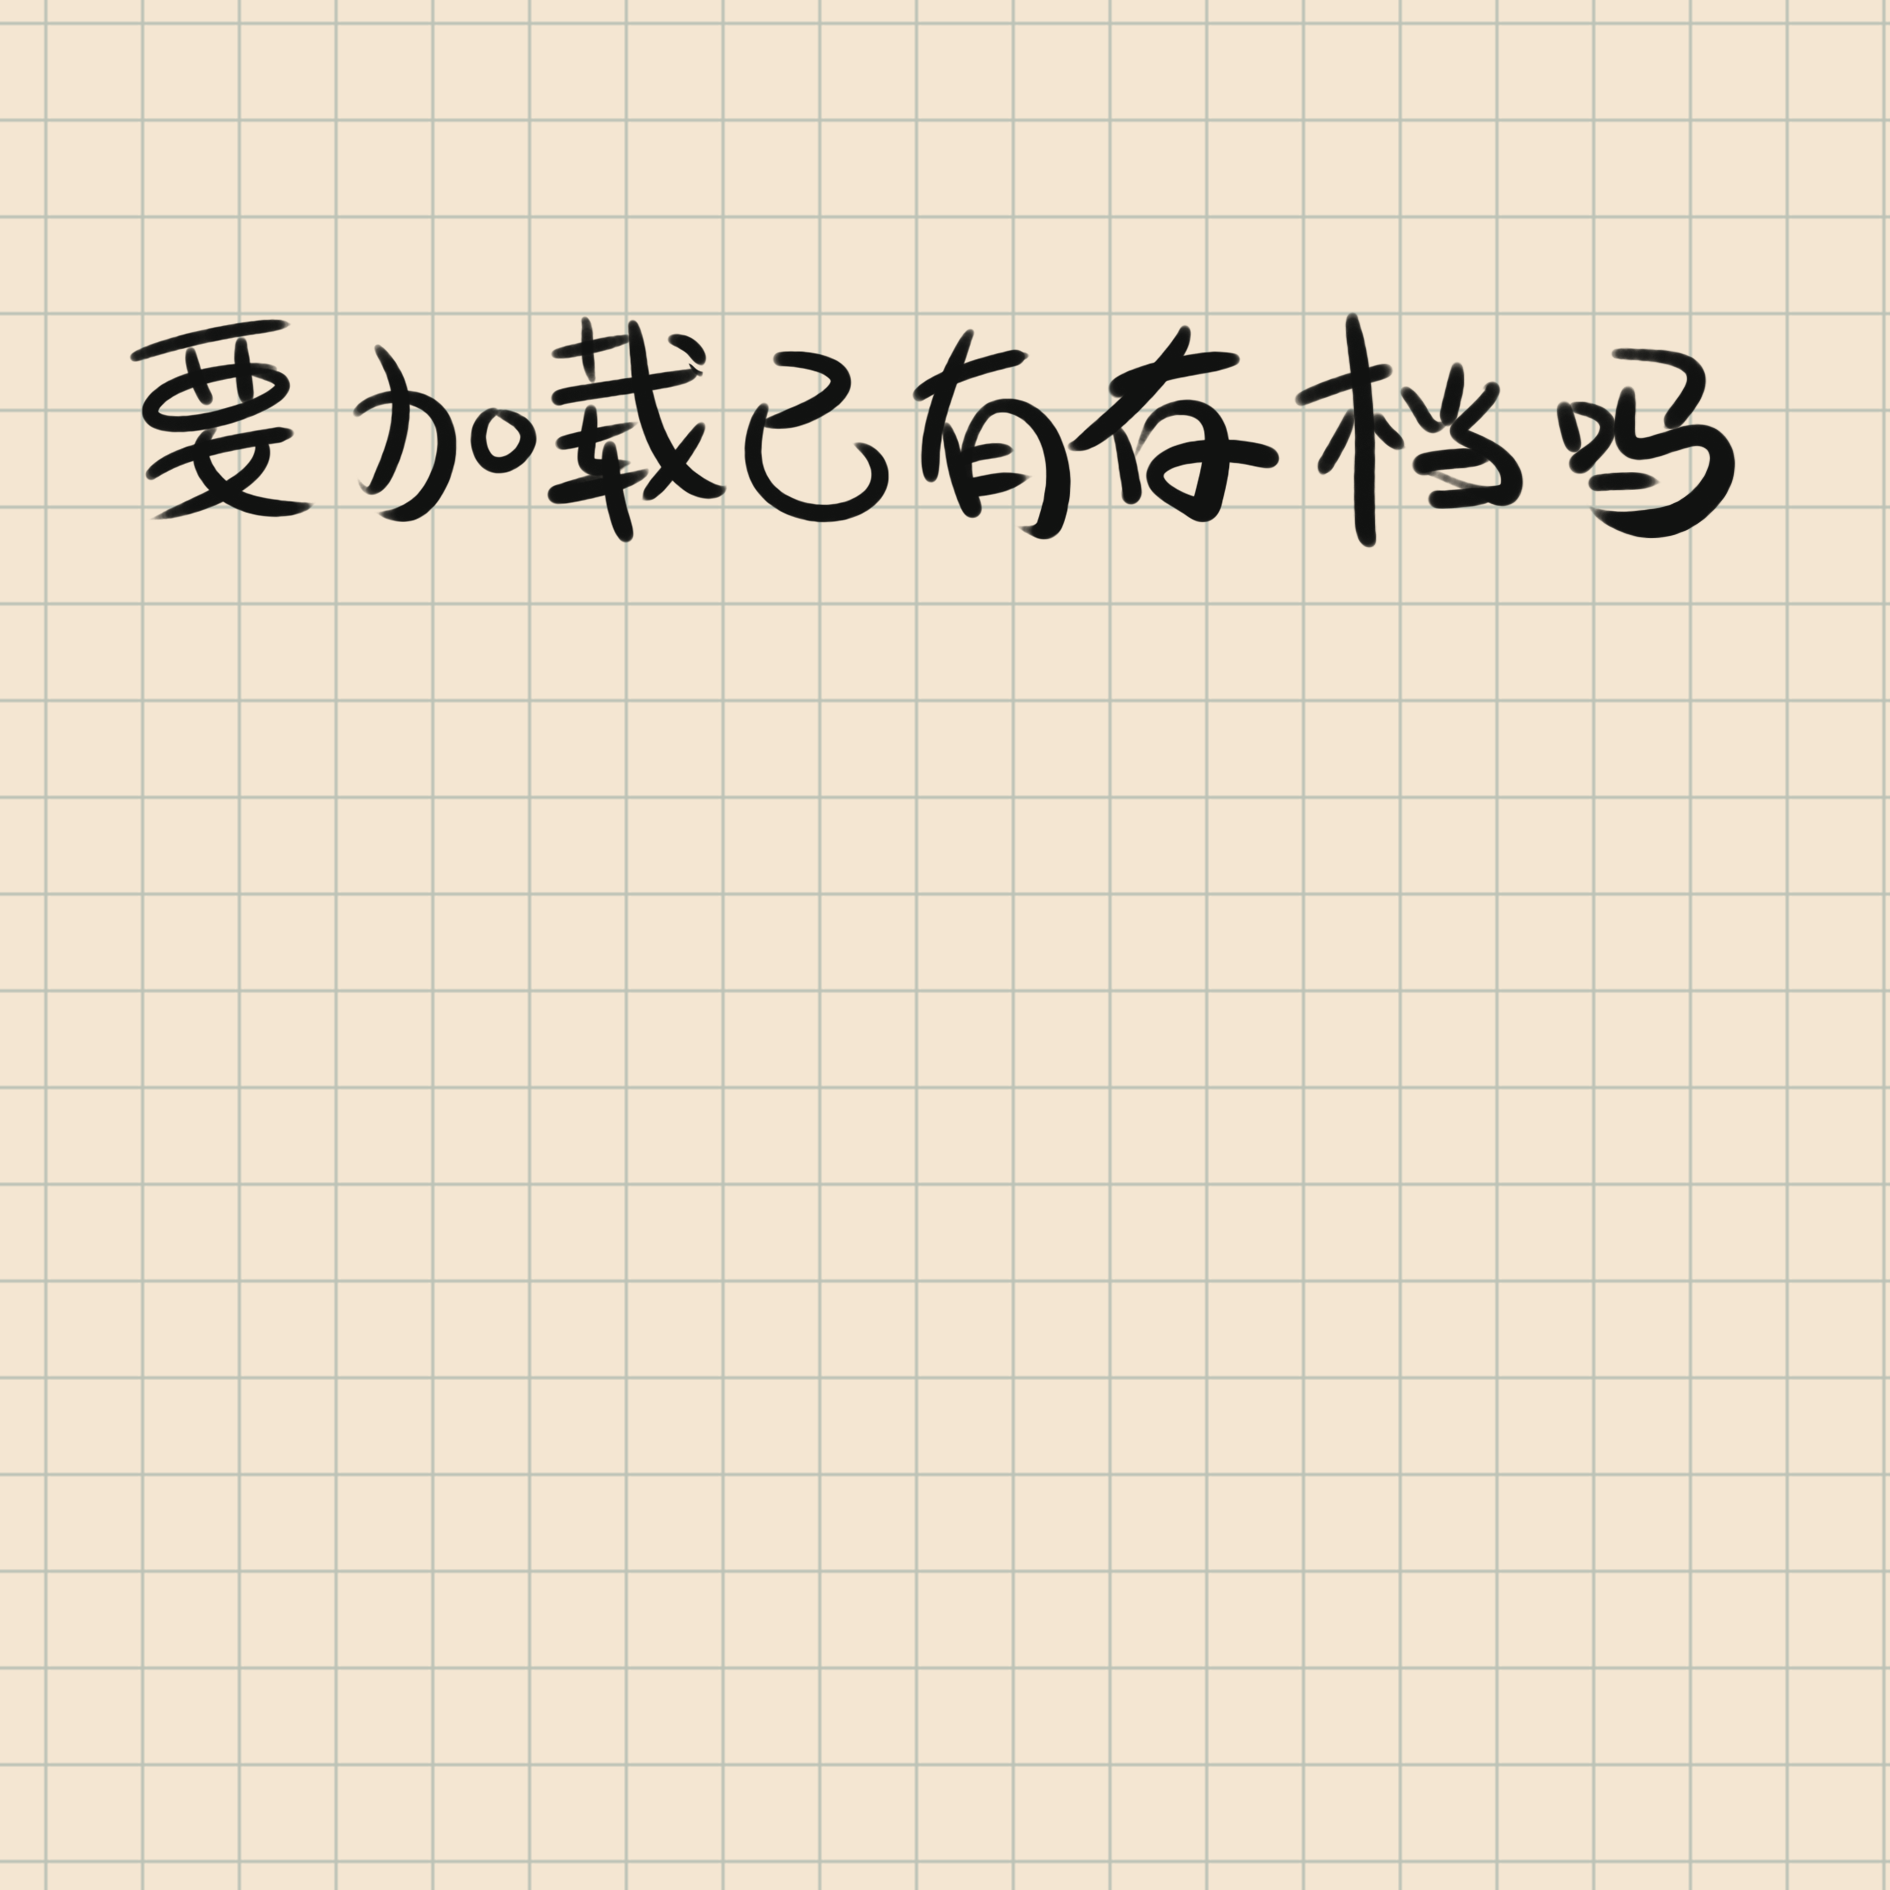 要加载已有存档吗